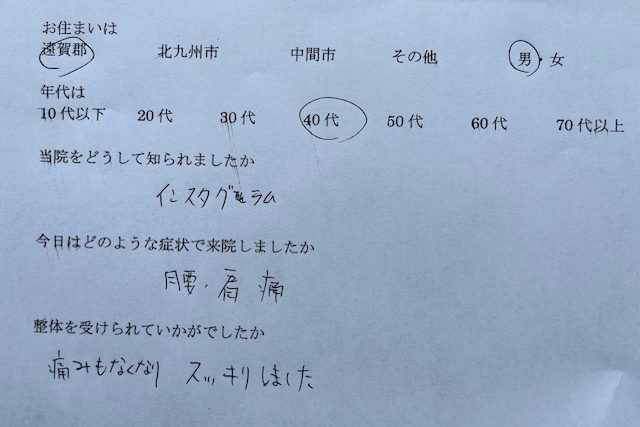 お住まいは
遠賀郡 北九州市 中間市 その他 男・女
年代は
10代以下 20代 30代 40代 50代 60代 70代以上
当院をどうして知られましたか
インスタグラム
今日はどのような症状で来院しましたか
腰・肩痛
整体を受けられていかがでしたか
痛みもなくなり スッキリしました